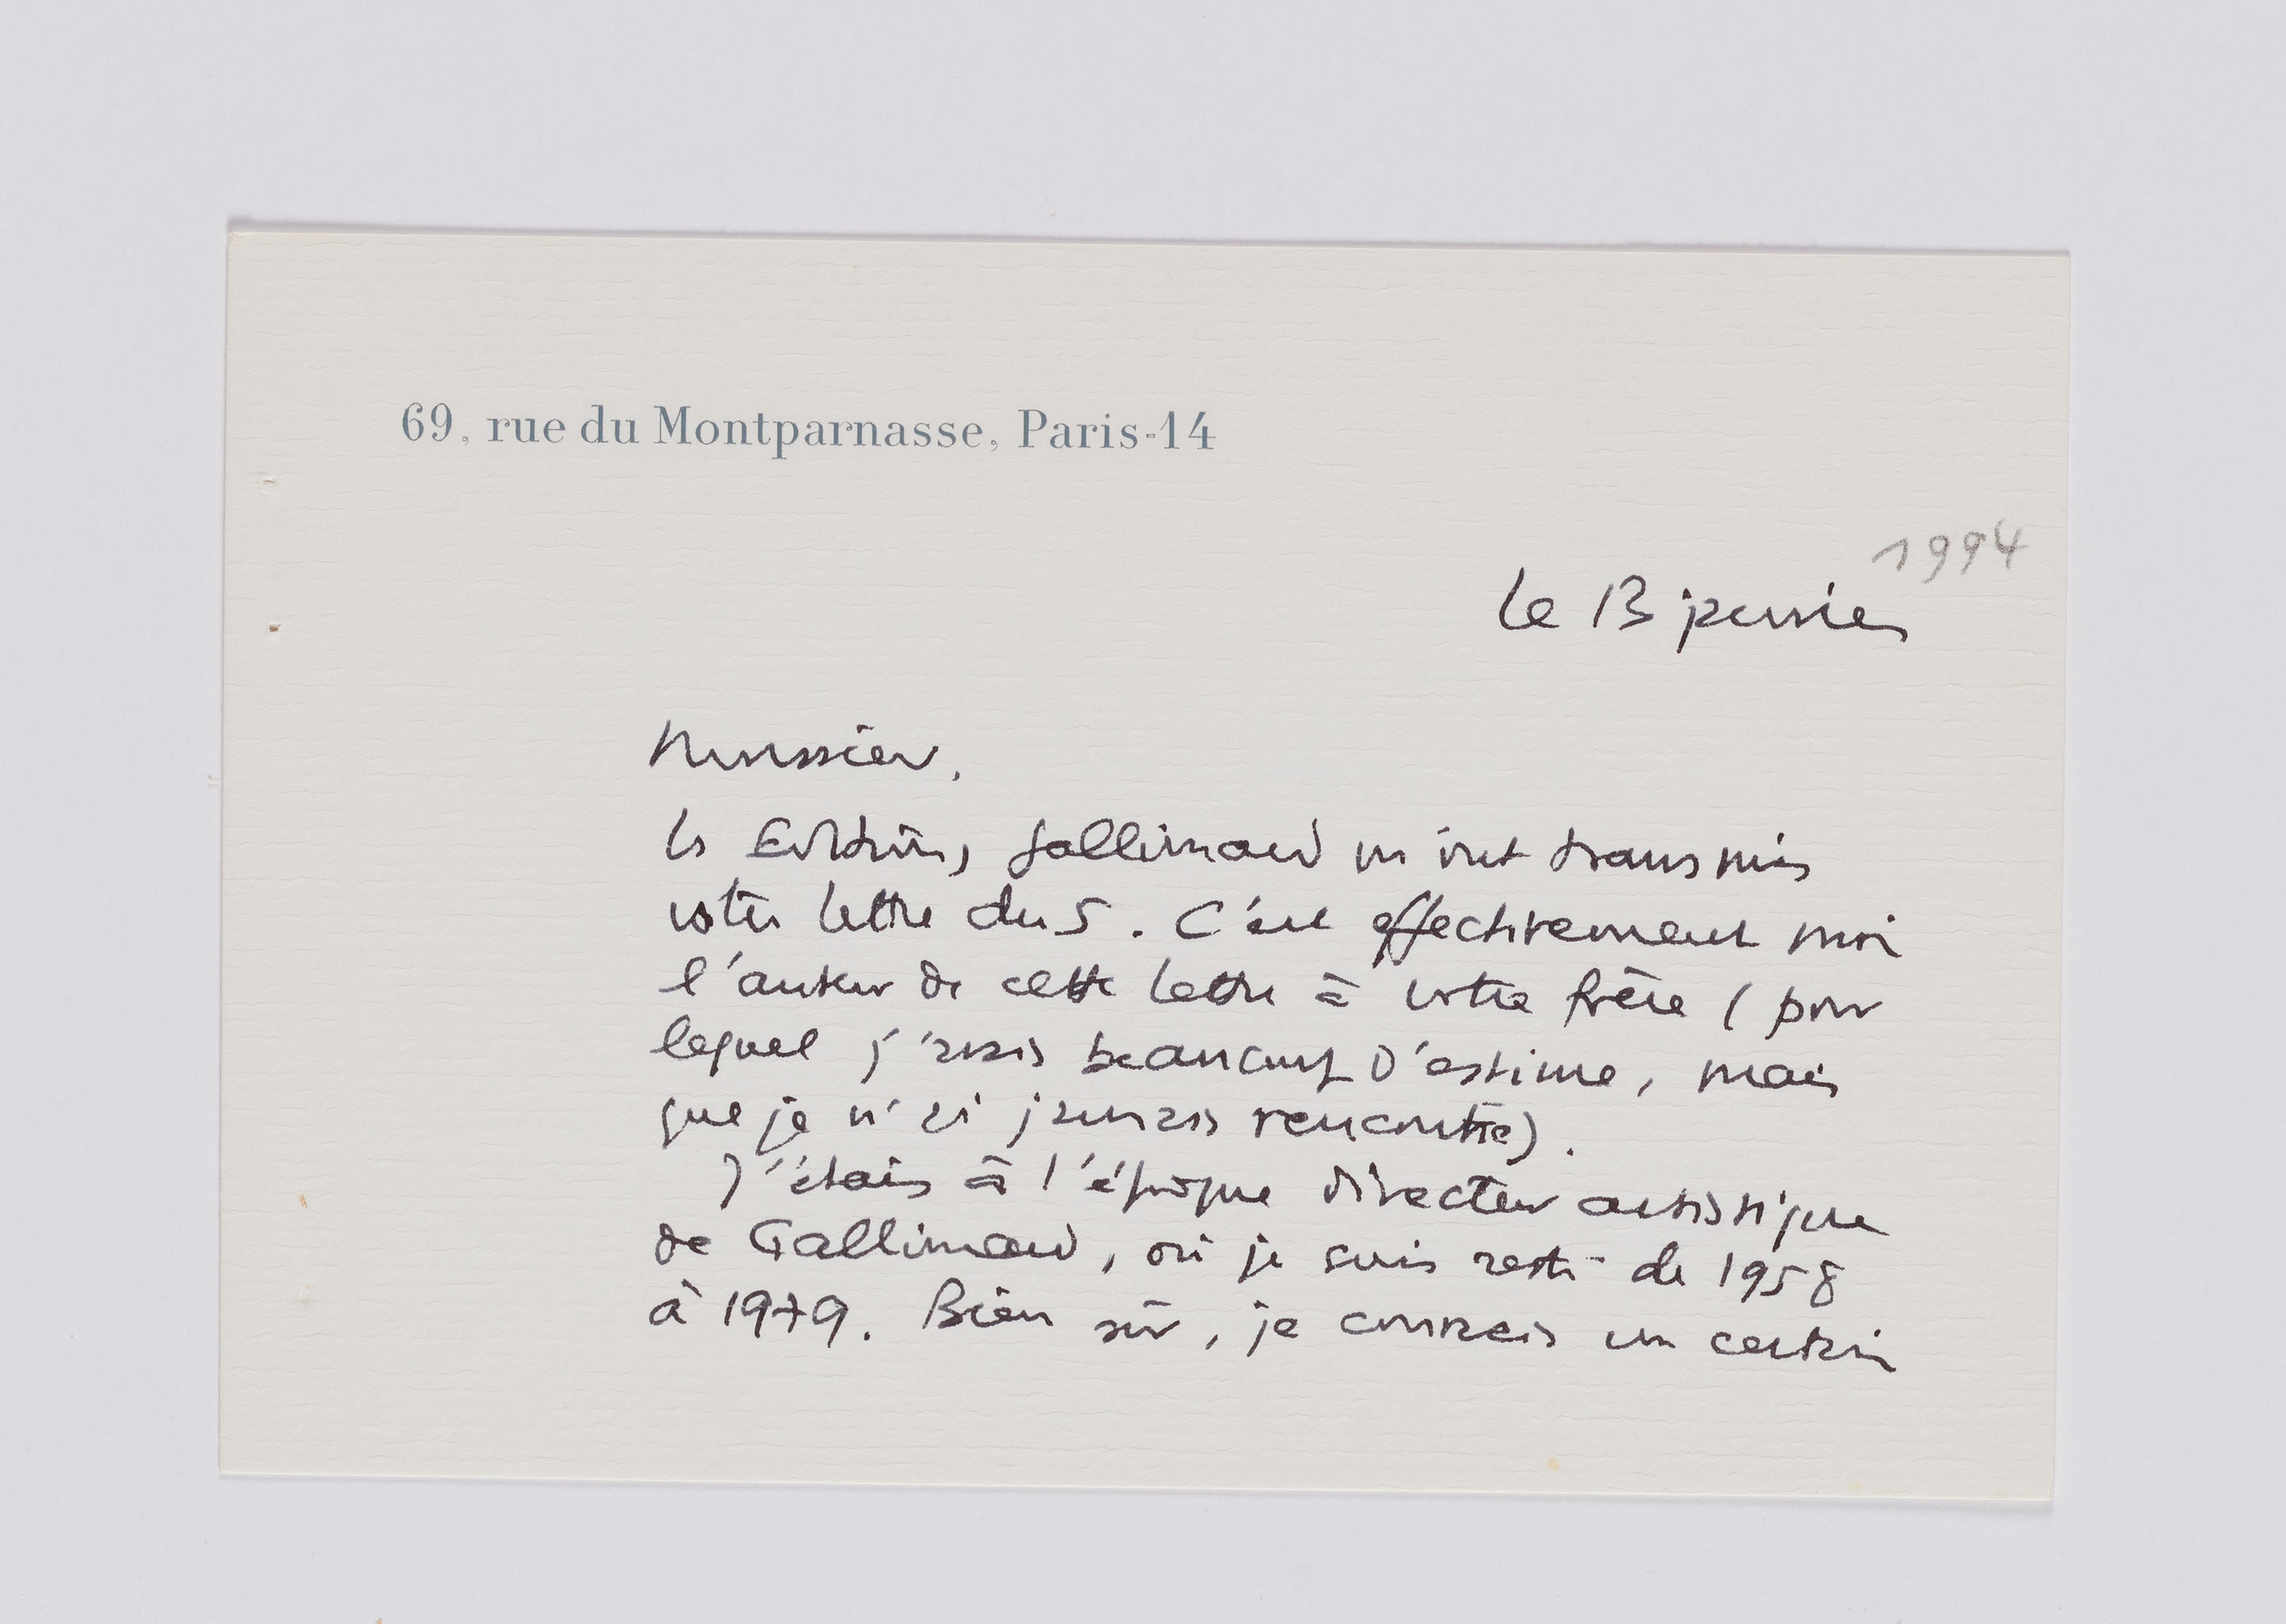 69, rue du Montparnasse, Paris-14
1994
le 13 janvier
Monsieur,
les Editions Gallimard m'ont transmis
votre lettre du 5. C'est effectivement moi
l'auteur de cette lettre à votre frère (pour
lequel j'avais beaucoup d'estime, mais
que je n'ai jamais rencontré).
J'étais à l'époque directeur artistique
de Gallimard, où je suis resté de 1958
à 1979. Bien sûr, je connais un certain